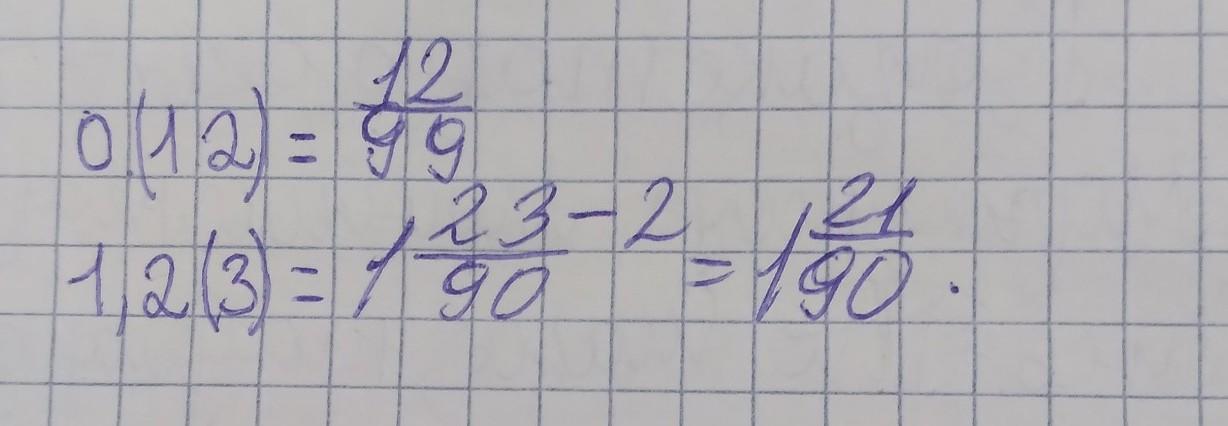 0,(12) = 12/99
1,2(3) = 1 23-2/90 = 1 21/90.